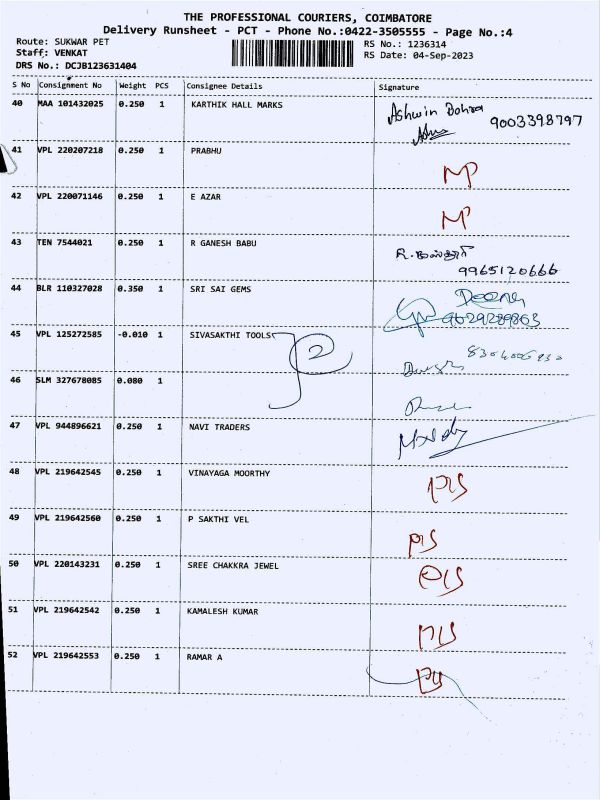 THE PROFESSIONAL COURIERS, COIMBATORE
Delivery Runsheet - PCT - Phone No.:0422-3505555 - Page No.:4
Route: SUKWAR PET
Staff: VENKAT
DRS No.: DCJB123631404
RS No.: 1236314
RS Date: 04-Sep-2023
S No Consignment No Weight PCS Consignee Details Signature
40 MAA 101432025 0.250 1 KARTHIK HALL MARKS Ashwin Bohra 9003398797
41 VPL 220207218 0.250 1 PRABHU MP
42 VPL 220071146 0.250 1 E AZAR MP
43 TEN 7544021 0.250 1 R GANESH BABU R. 9965120666
44 BLR 110327028 0.350 1 SRI SAI GEMS Deena 9629289863
45 VPL 125272585 -0.010 1 SIVASAKTHI TOOLS 2
46 SLM 327678085 0.080 1
47 VPL 944896621 0.250 1 NAVI TRADERS
48 VPL 219642545 0.250 1 VINAYAGA MOORTHY
49 VPL 219642560 0.250 1 P SAKTHI VEL
50 VPL 220143231 0.250 1 SREE CHAKKRA JEWEL
51 VPL 219642542 0.250 1 KAMALESH KUMAR
52 VPL 219642553 0.250 1 RAMAR A